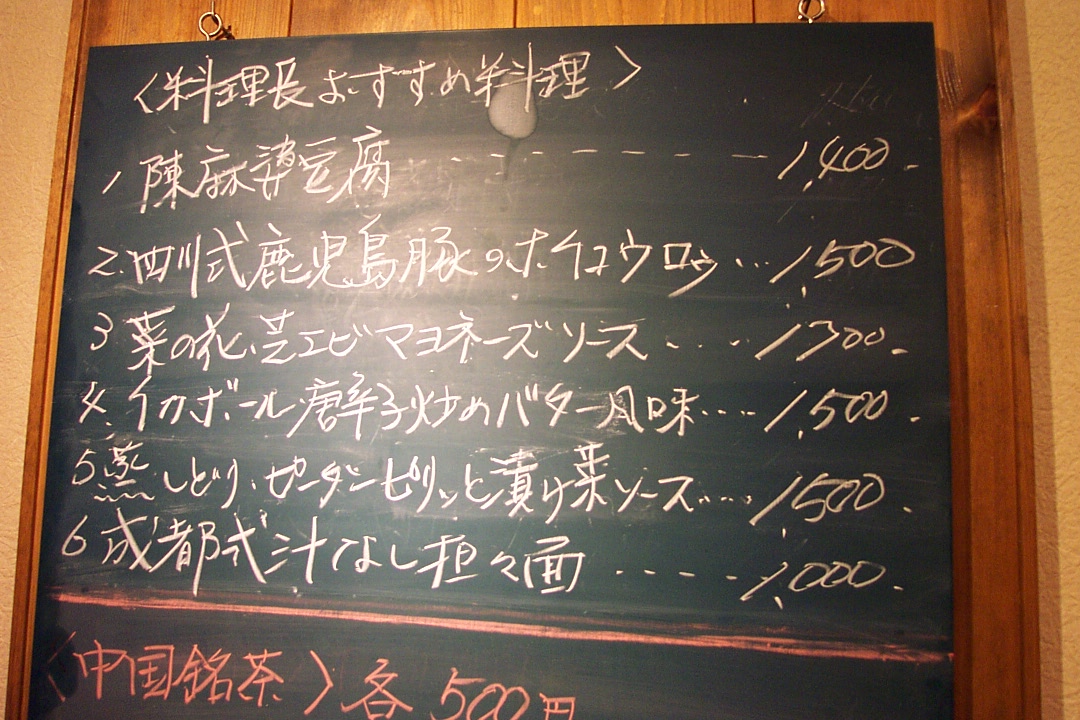 〈料理長おすすめ料理〉
1 陳麻婆豆腐 ------- 1,400.-
2.四川式鹿児島豚のホイコウロウ...1,500
3 菜の花、芝エビマヨネーズソース....1,300.-
4.イカボール唐辛子炒めバター風味....1,500.-
5 蒸しどり、ピータンピリッと漬け菜ソース....1,500.
6 成都式汁なし担々面 ----- 1,000.-
〈中国銘茶〉各500円